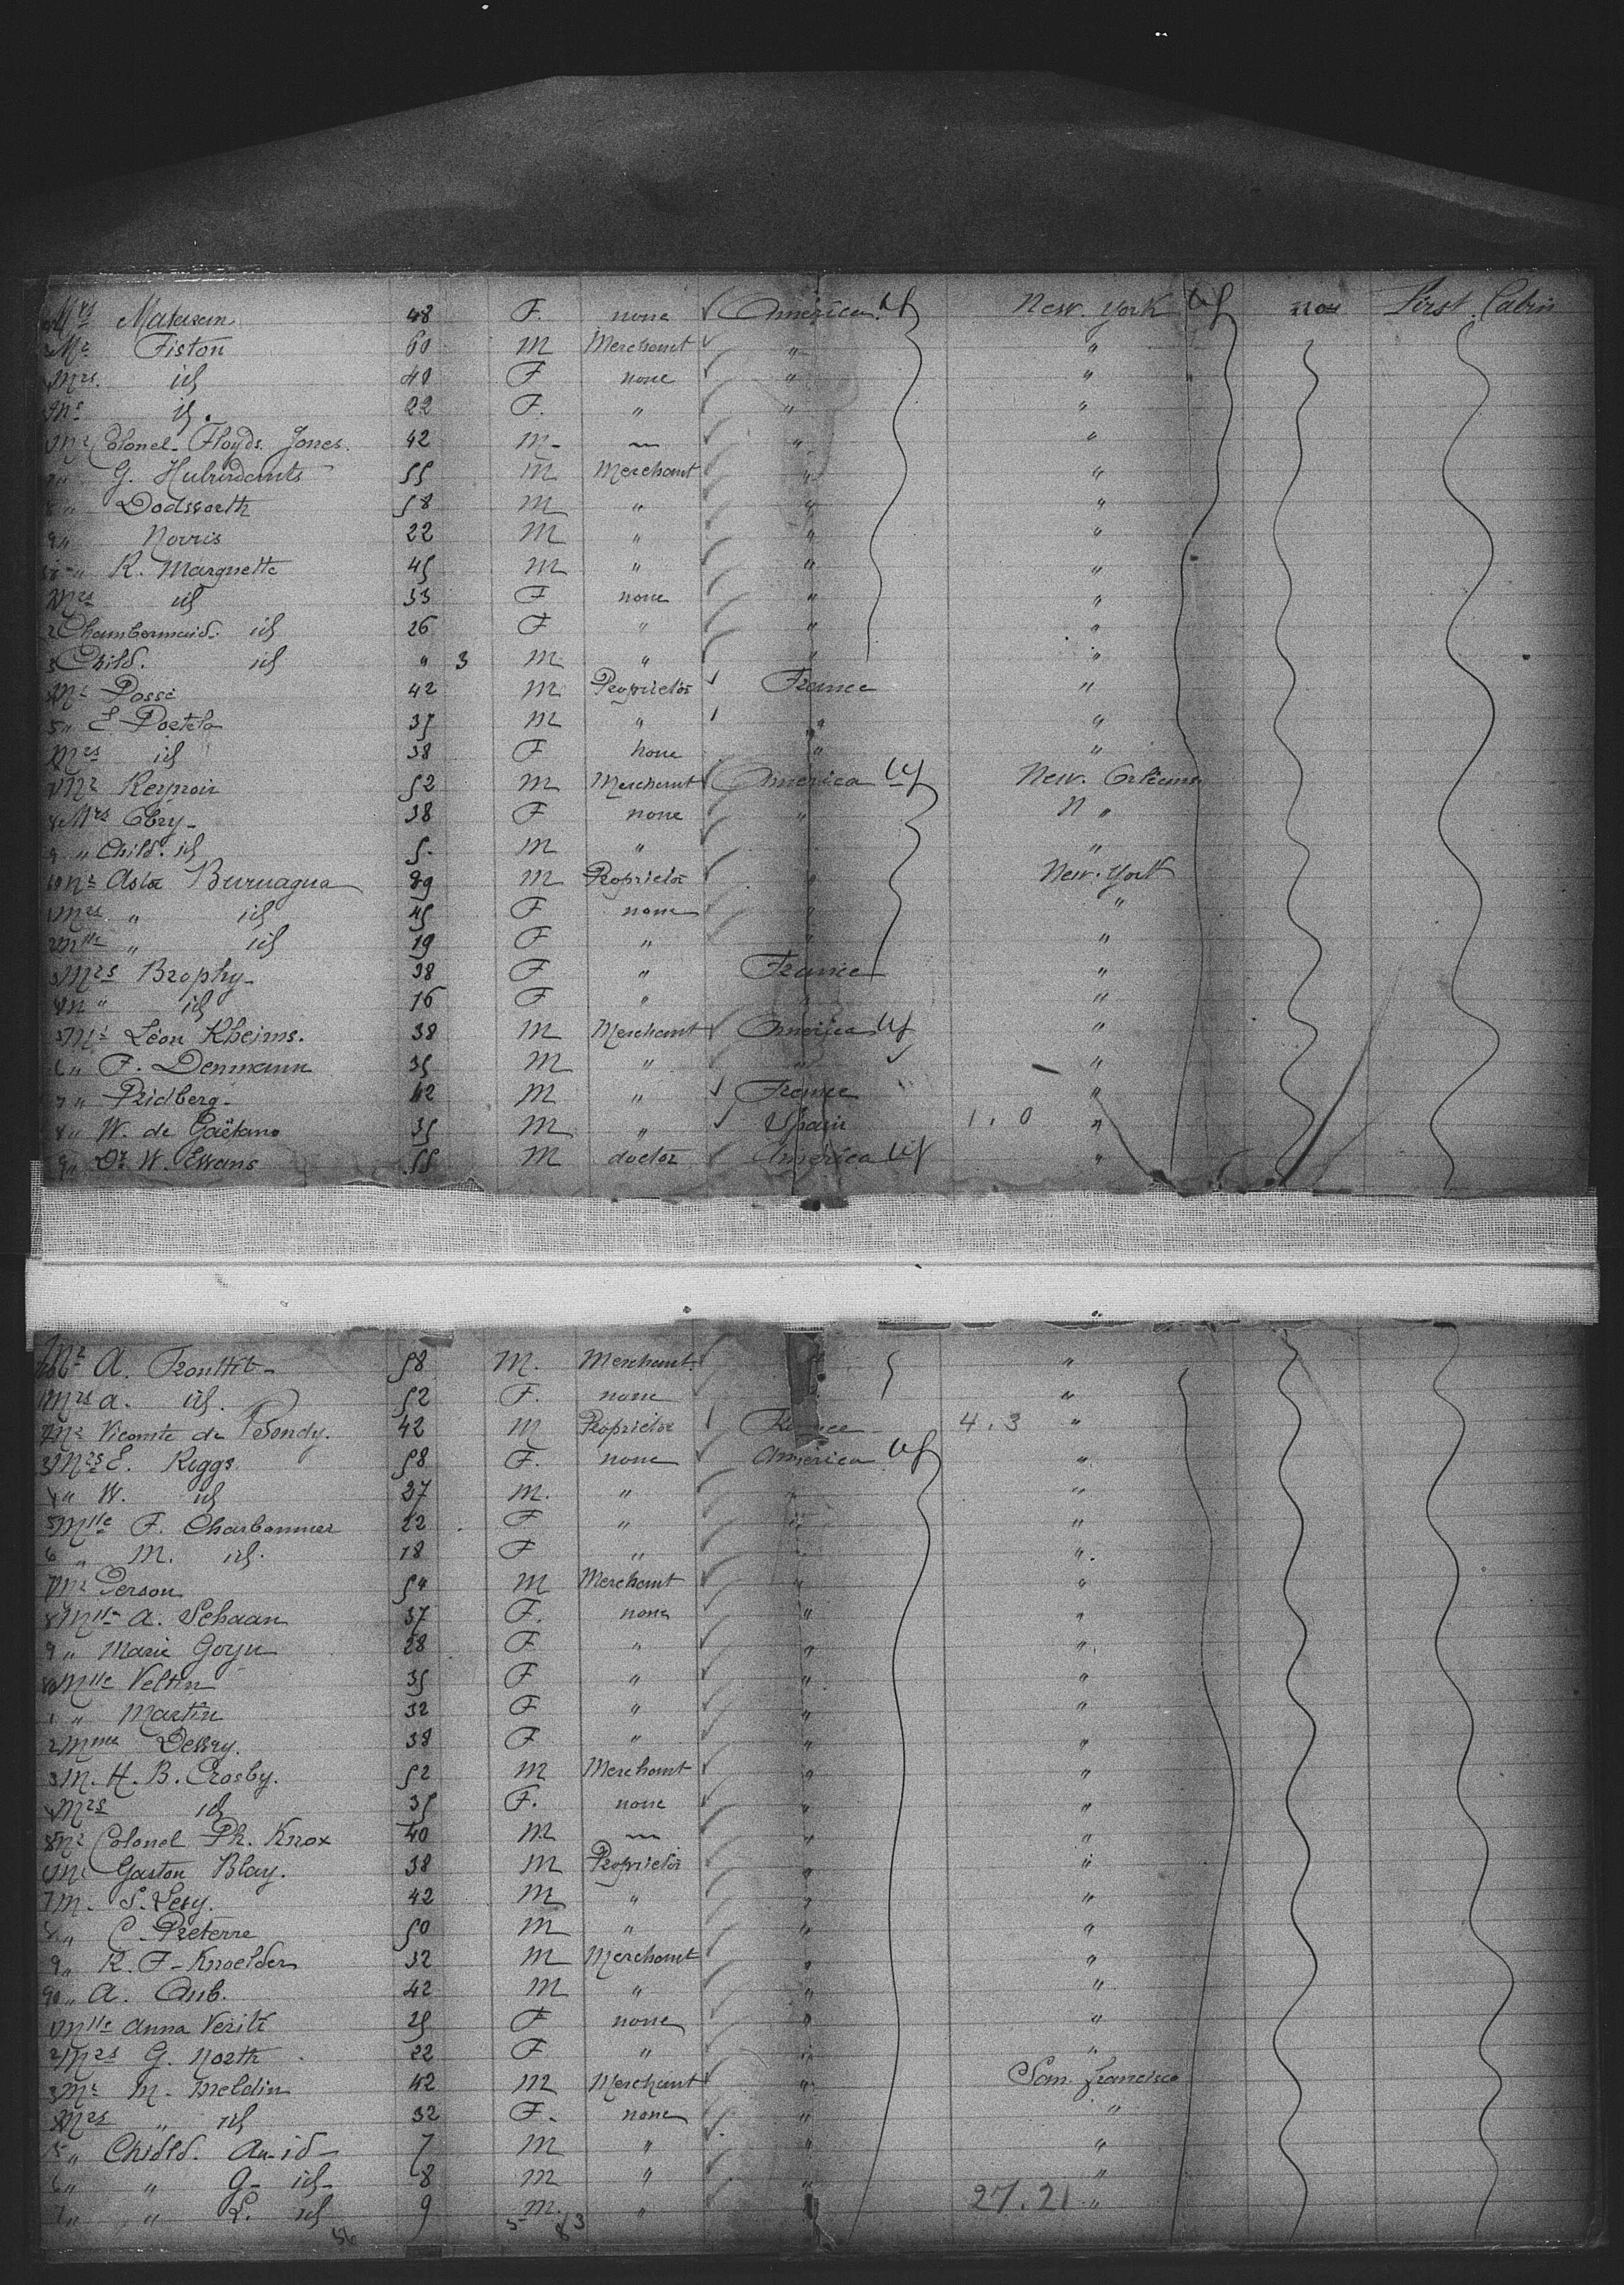 Mrs 48 F. none America New. York non First Cabin
Mr Fiston 60 M Merchant " "
Mrs. id 48 F none " "
id. 22 F. " " "
Mr Colonel Floyds Jones. 42 M - " "
" G. 55 M Merchant " "
8 " Dodsworth 58 M " " "
9 " Norris 22 M " " "
" R. Marquette 45 M " " "
Mrs id 33 F none " "
2 Chambermaid. id 26 F " " "
3 Child. id " 3 M " " "
Mr Posse 42 M Proprietor France "
5 " E Portela 37 M " " "
Mrs id 38 F none " "
7 Mr Reynoir 52 M Merchant America New. Orleans
8 Mrs 38 F none " N "
9 " Child. id 5. M " "
Mr Buruagua M Proprietor " New. York
1 Mrs " id 45 F none " "
2 Mlle " id 19 F " " "
3 Mrs Brophy 38 F " France "
4 M " id 16 F " " "
5 Mr Léon Rheims. 38 M Merchant America "
6 " F. Denmann 35 M " " "
7 " Pridberg. 42 M " France "
8 " W. de Gaëtano 35 M " Spain 1. 0 "
9 " Dr W. Ewans 55 M doctor America "
Mr A. 58 M. Merchant. "
1 Mrs A. id. 52 F. none "
2 Mr Vicomte de 42 M Proprietor France 4. 3 "
3 Mrs E. Riggs 58 F. none America "
4 " W. id 37 M. " " "
5 Mlle F. Charbonnier 22 F " " "
6 " M. id. 18 F " " "
7 Mr Person 54 M Merchant " "
8 Mlle A. Schaan 37 F. none " "
9 " Marie Goyu 28 F " " "
Mlle Veltin 35 F " " "
1 " Martin 32 F " " "
2 Mme Dessry. 38 F " " "
3 M. H. B. Crosby. 52 M Merchant " "
4 Mrs id 35 F. none " "
5 Mr Colonel Ph. Knox 40 M " "
6 Mr Gaston Blay. 38 M Proprietor " "
7 M. S. Levy. 42 M " " "
8 " C. Preterre 50 M " " "
9 " R. F. Knoelder 32 M Merchant " "
90 " A. Aub. 42 M " " "
1 Mlle Anna Verité 25 F none " "
2 Mrs G. North 22 F " " "
3 Mr M. Meldin 42 M Merchant " San francisco
4 Mrs " id 32 F. none " "
5 " Chidld. id 7 M " " "
6 " " G. id 8 M " " "
7 " " L. id 9 M. " " 27. 21 "
56 5 83